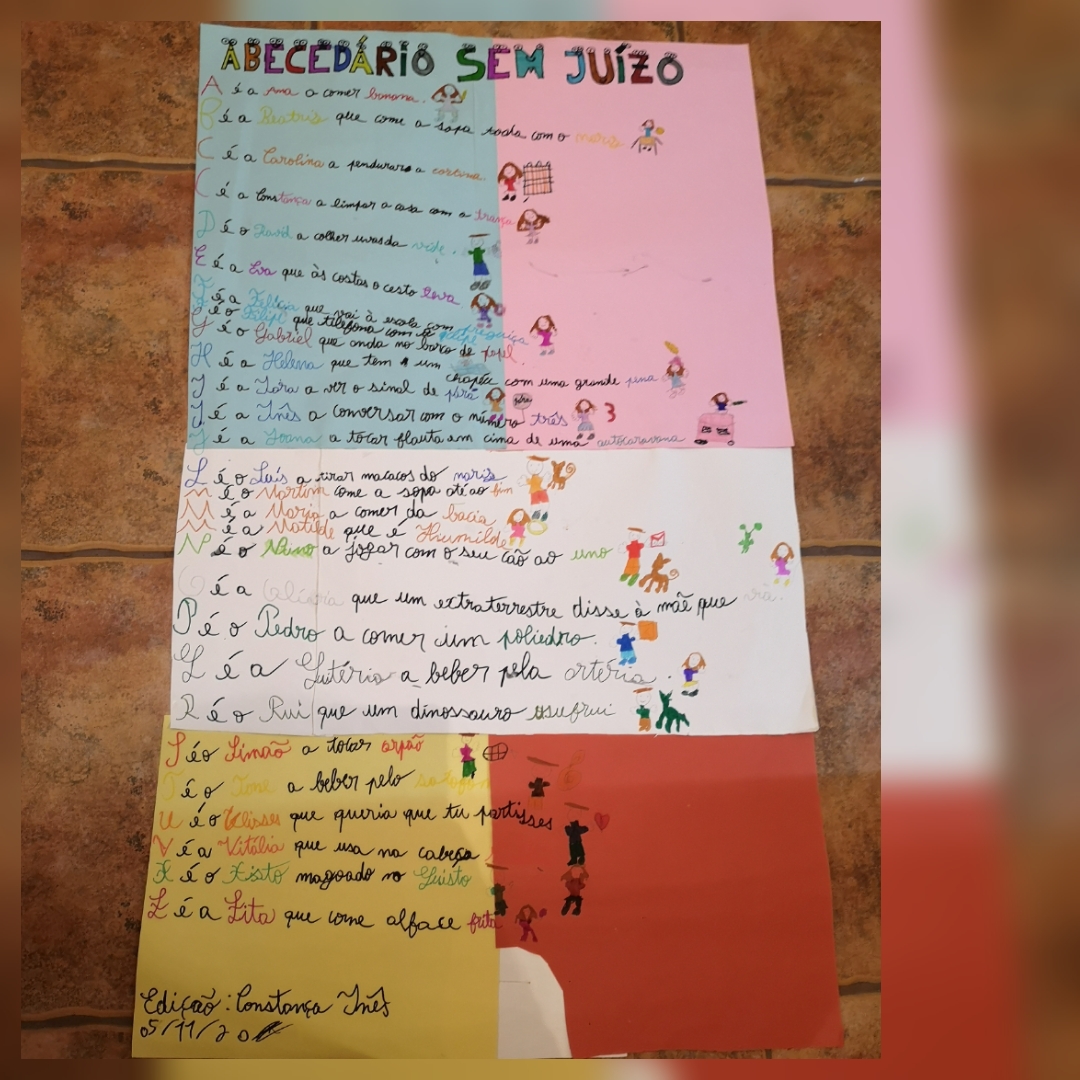 ABECEDÁRIO SEM JUÍZO
A é a Ana a comer banana.
B é a Beatriz que come a sopa toda com o nariz
C é a Carolina a pendurar a cortina
C é a Constança a limpar a casa com a trança
D é o David a colher uvas da vide.
E é a Eva que às costas o cesto leva
F é a Felícia que vai à escola com preguiça
F é o Filipe que telefona com
G é o Gabriel que anda no barco de papel.
H é a Helena que tem um chapéu com uma grande pena
I é a Iara a ver o sinal de pára
I é a Inês a conversar com o número três 3
J é a Joana a tocar flauta em cima de uma autocaravana
L é o Luís a tirar macacos do nariz
M é o Martim come a sopa até ao fim
M é a Maria a comer da bacia
M é a Matilde que é Humilde
N é o Nuno a jogar com o seu cão ao uno
O é a que um extraterrestre disse à mãe que
P é o Pedro a comer um poliedro.
é a a beber pela artéria.
R é o Rui que um dinossauro usufrui
S é o Simão a tocar arpão
T é o a beber pelo
U é o Ulisses que queria que tu partisses
V é a Vitália que usa na cabeça
X é o Xisto magoado no
Z é a Zita que come alface frita
Edição: Constança Inês
05/11/20